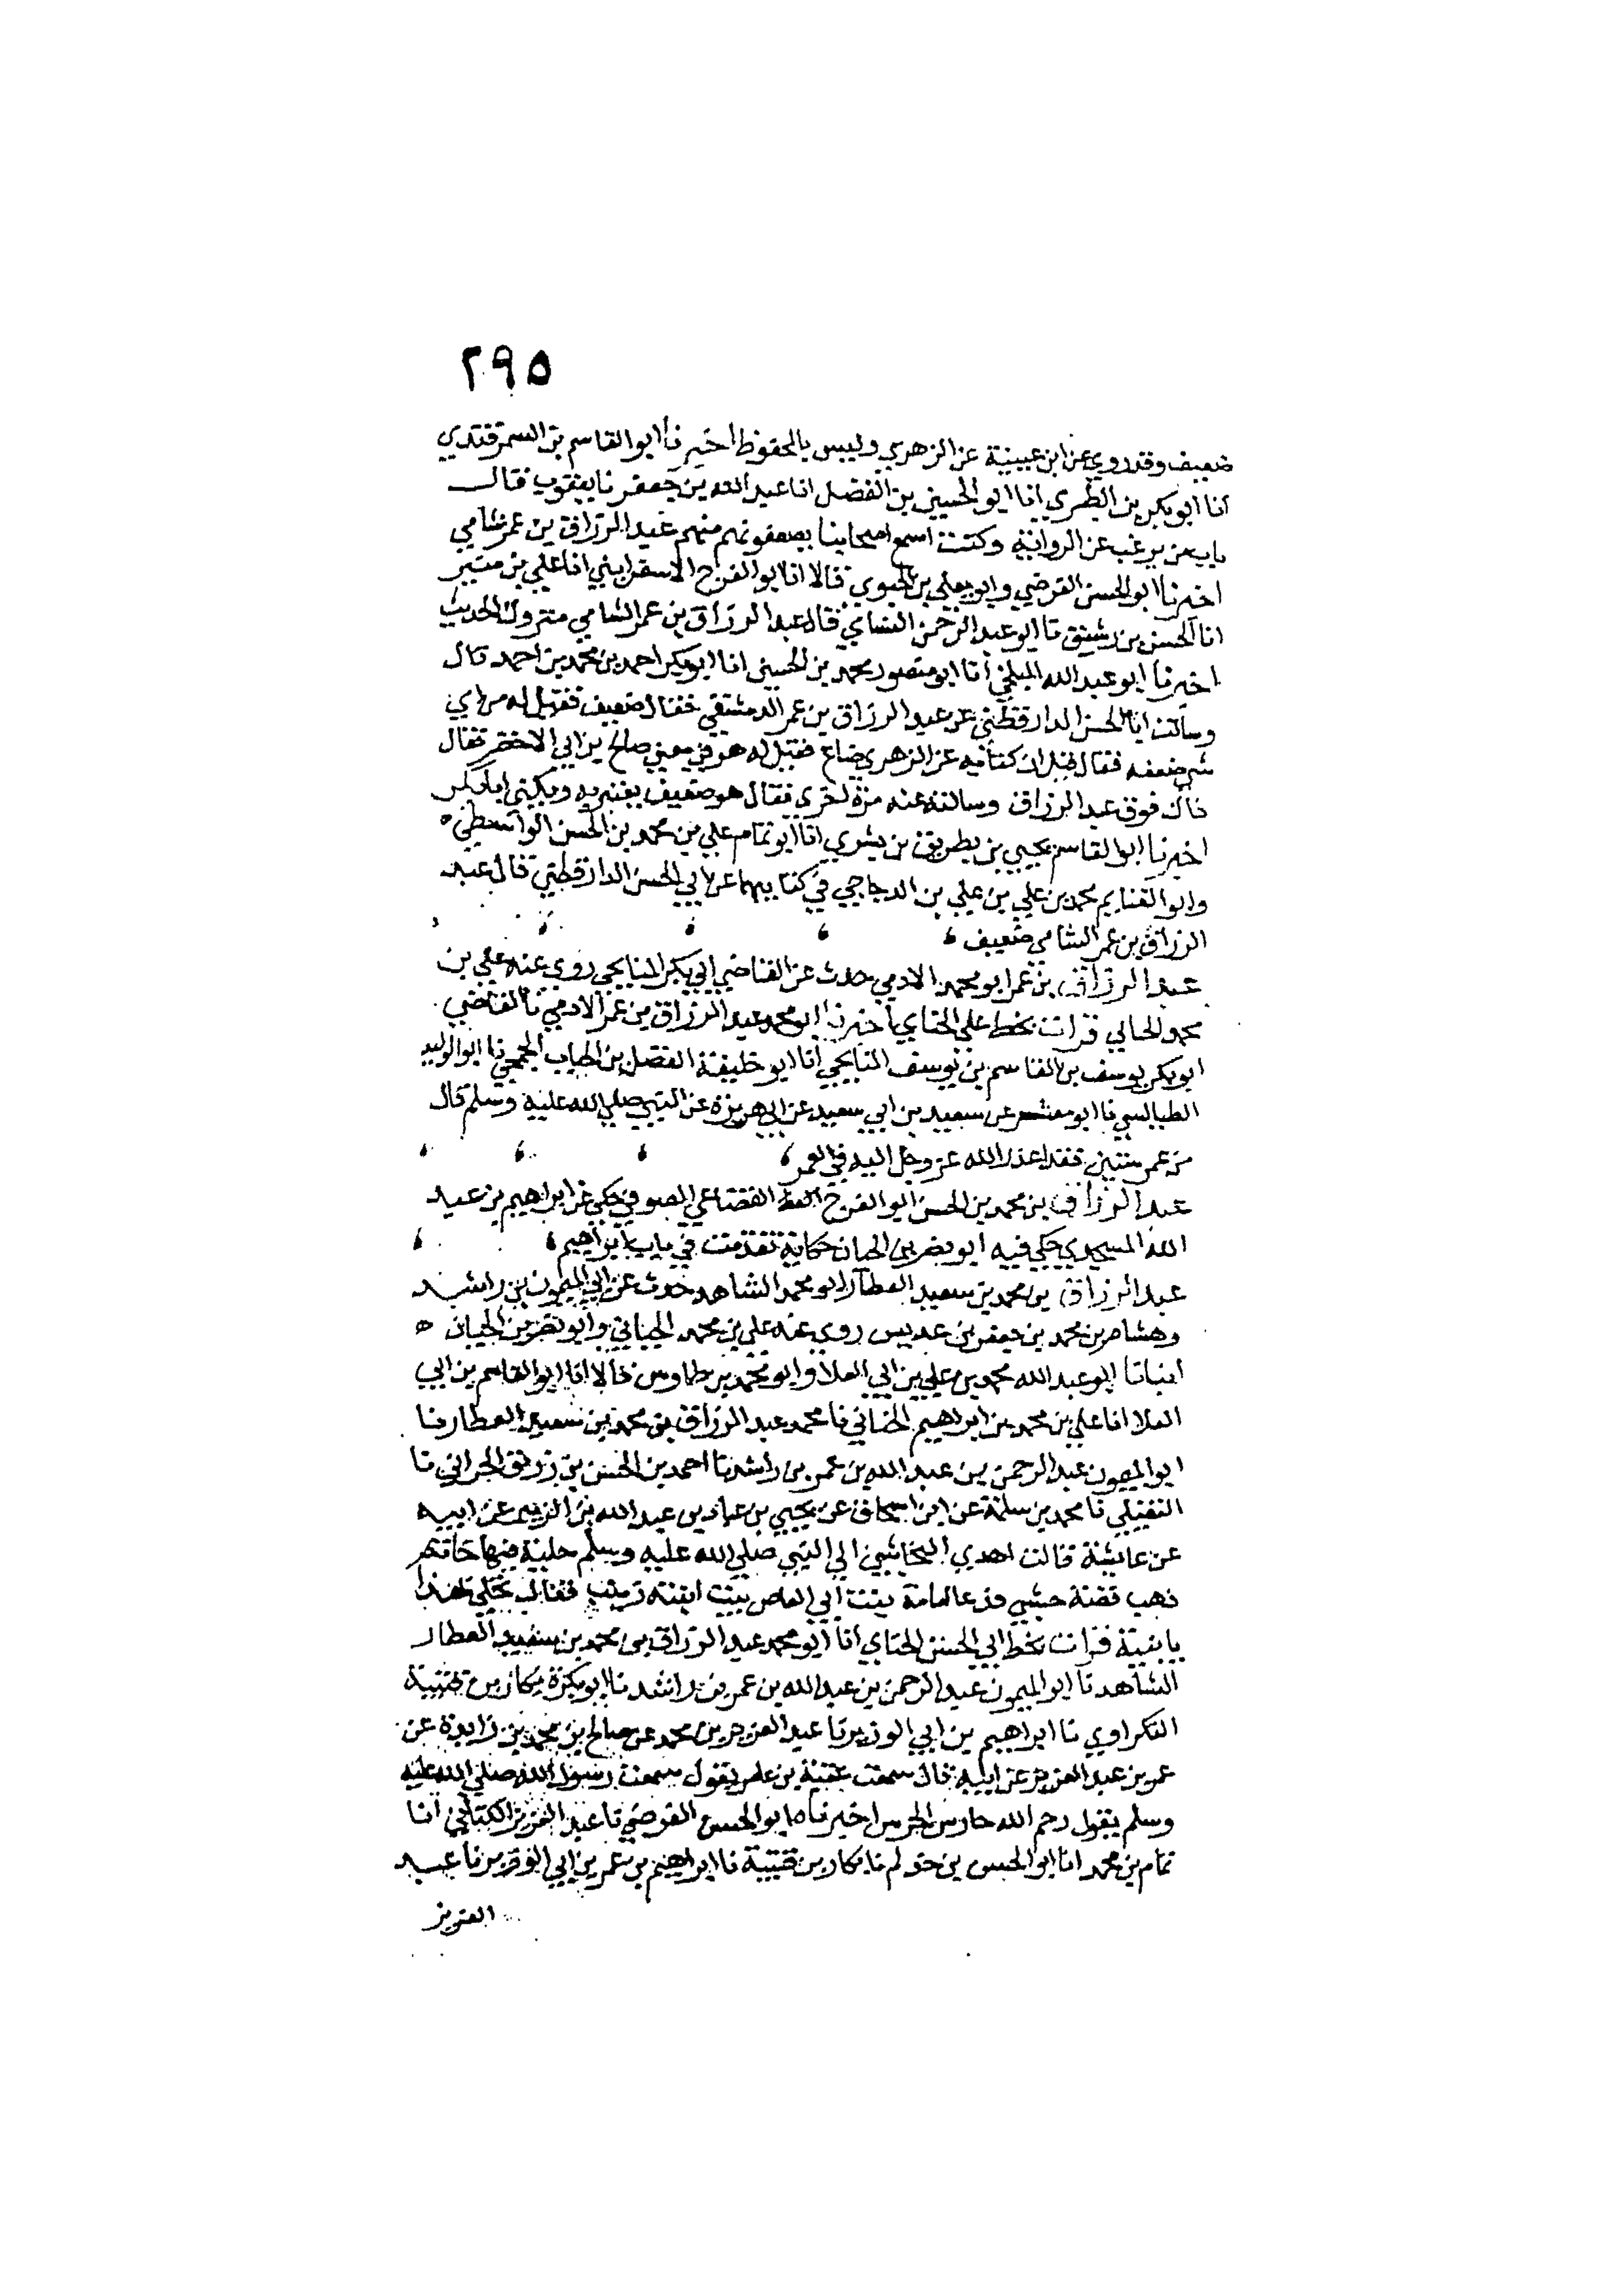 ٢٩٥
ضعيف وقد روي عن ابن عيينة عن الزهري وليس بالمحفوظ اخبرنا ابو القاسم بن السمرقندي
انا ابو بكر بن الطبري انا ابو الحسين بن الفضل انا عبد الله بن جعفر نا يعقوب قال
باب من يرغب عن الرواية وكنت اسمع اصحابنا يضعفونهم منهم عبد الرزاق بن عمر شامي
اخبرنا ابو الحسن الفرضي وابو يعلي بن الحبوي قالا انا ابو الفرج الاسفرايني انا علي بن منير
انا الحسن بن رشيق نا ابو عبد الرحمن النسائي قال عبد الرزاق بن عمر الشامي متروك الحديث
اخبرنا ابو عبد الله البلخي انا ابو منصور محمد بن الحسين انا ابو بكر احمد بن محمد بن احمد قال
وسالت ابا الحسن الدارقطني عن عبد الرزاق بن عمر الدمشقي فقال ضعيف فقيل له من اي
شي ضعفه فقال قيل ان كتابه عن الزهري ضاع فقيل له هو في معني صالح بن ابي الاخضر فقال
ذاك فوق عبد الرزاق وسالته عنه مرة اخري فقال هو ضعيف يعتبر به ويكني ابا بكر
اخبرنا ابو القاسم يحيي بن بطريق بن بشري انا ابو تمام علي بن محمد بن الحسن الواسطي ه
وابو الغنايم محمد بن علي بن علي بن الدجاجي في كتابيهما عن ابي الحسن الدارقطني قال عبد
الرزاق بن عمر الشامي ضعيف
عبد الرزاق بن عمر ابو محمد الادمي حدث عن القاضي ابي بكر الميانجي روي عنه علي بن
محمد الحنائي قرات بخط علي الحنائي اخبرنا ابو محمد عبد الرزاق بن عمر الادمي نا القاضي
ابو بكر يوسف بن القاسم بن يوسف الميانجي انا ابو خليفة الفضل بن الحباب الجمحي نا ابو الوليد
الطيالسي نا ابو معشر عن سعيد بن ابي سعيد عن ابي هريرة عن النبي صلي الله عليه وسلم قال
من عمر ستين فقد اعذر الله عز وجل اليه في العمر
عبد الرزاق بن محمد بن الحسن ابو الفرج القضاعي الصوفي حكي عن ابراهيم بن عبد
الله المسجدي حكي فيه ابو نصر بن الجبان حكاية تقدمت في باب ابراهيم
عبد الرزاق بن محمد بن سعيد العطار ابو محمد الشاهد حدث عن ابي الميمون بن راشد
وهشام بن محمد بن جعفر بن عدبس روي عنه علي بن محمد الحنائي وابو نصر بن الجبان ه
انبانا ابو عبد الله محمد بن علي بن ابي العلا وابو محمد بن طاوس قالا انا ابو القاسم بن ابي
العلا انا علي بن محمد بن ابراهيم الحنائي نا محمد عبد الرزاق بن محمد بن سعيد العطار نا
ابو الميمون عبد الرحمن بن عبد الله بن عمر بن راشد نا احمد بن الحسن بن زريق الحراني نا
النفيلي نا محمد بن سلمة عن ابن اسحاق عن يحيي بن عباد بن عبد الله بن الزبير عن ابيه
عن عايشة قالت اهدي النجاشي الي النبي صلي الله عليه وسلم حلية فيها خاتم
ذهب فصه حبشي فدعا امامة بنت ابي العاص بنت ابنته زينب فقال تحلي هذا
يا بنية قرات بخط ابي الحسن الحنائي انا ابو محمد عبد الرزاق بن محمد بن سعيد العطار
الشاهد نا ابو الميمون عبد الرحمن بن عبد الله بن عمر بن راشد نا ابو بكرة بكار بن قتيبة
البكراوي نا ابراهيم بن ابي الوزير نا عبد العزيز بن محمد عن صالح بن محمد بن زايدة عن
عمر بن عبد العزيز عن ابيه قال سمعت عقبة بن عامر يقول سمعت رسول الله صلي الله عليه
وسلم يقول رحم الله حارس الحرس اخبرناه ابو الحسن الفرضي نا عبد العزيز الكتاني انا
تمام بن محمد انا ابو الحسن بن حذلم نا بكار بن قتيبة نا ابراهيم بن عمر بن ابي الوزير نا عبد
العزيز